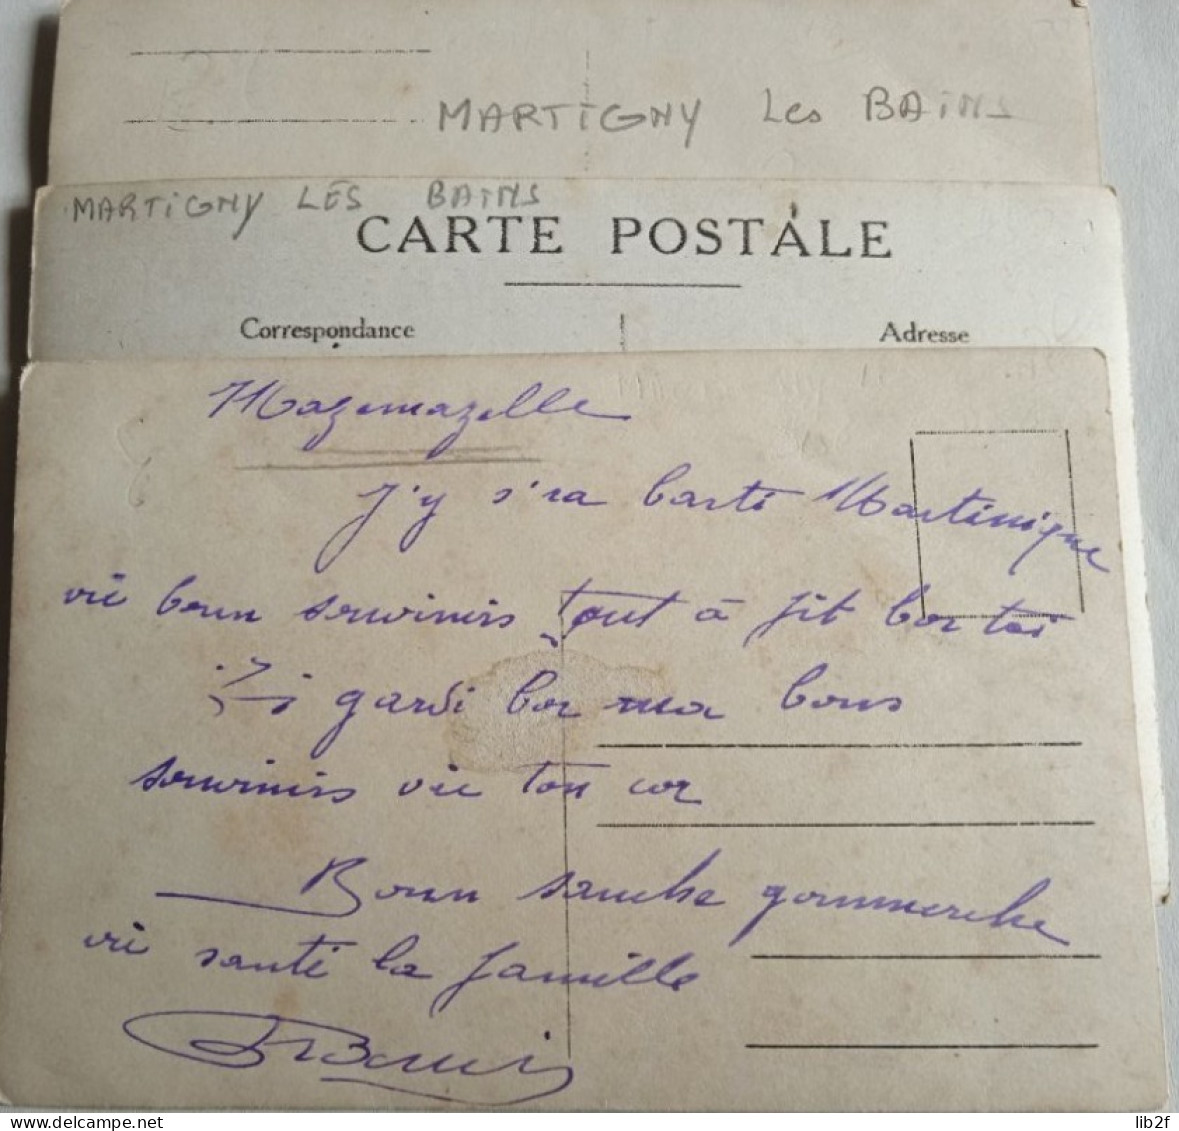 MARTIGNY Les BAINS
MARTIGNY LES BAINS
CARTE POSTALE
Correspondance
Adresse
Mazemazelle
J'y s'ra barti Martinique
vic bonn souvinirs tout à fit bor toi
Ti gardi bor ma bons
souvinirs vic ton cor
Bonn sanche gommerche
vic santi la famille
lib2f